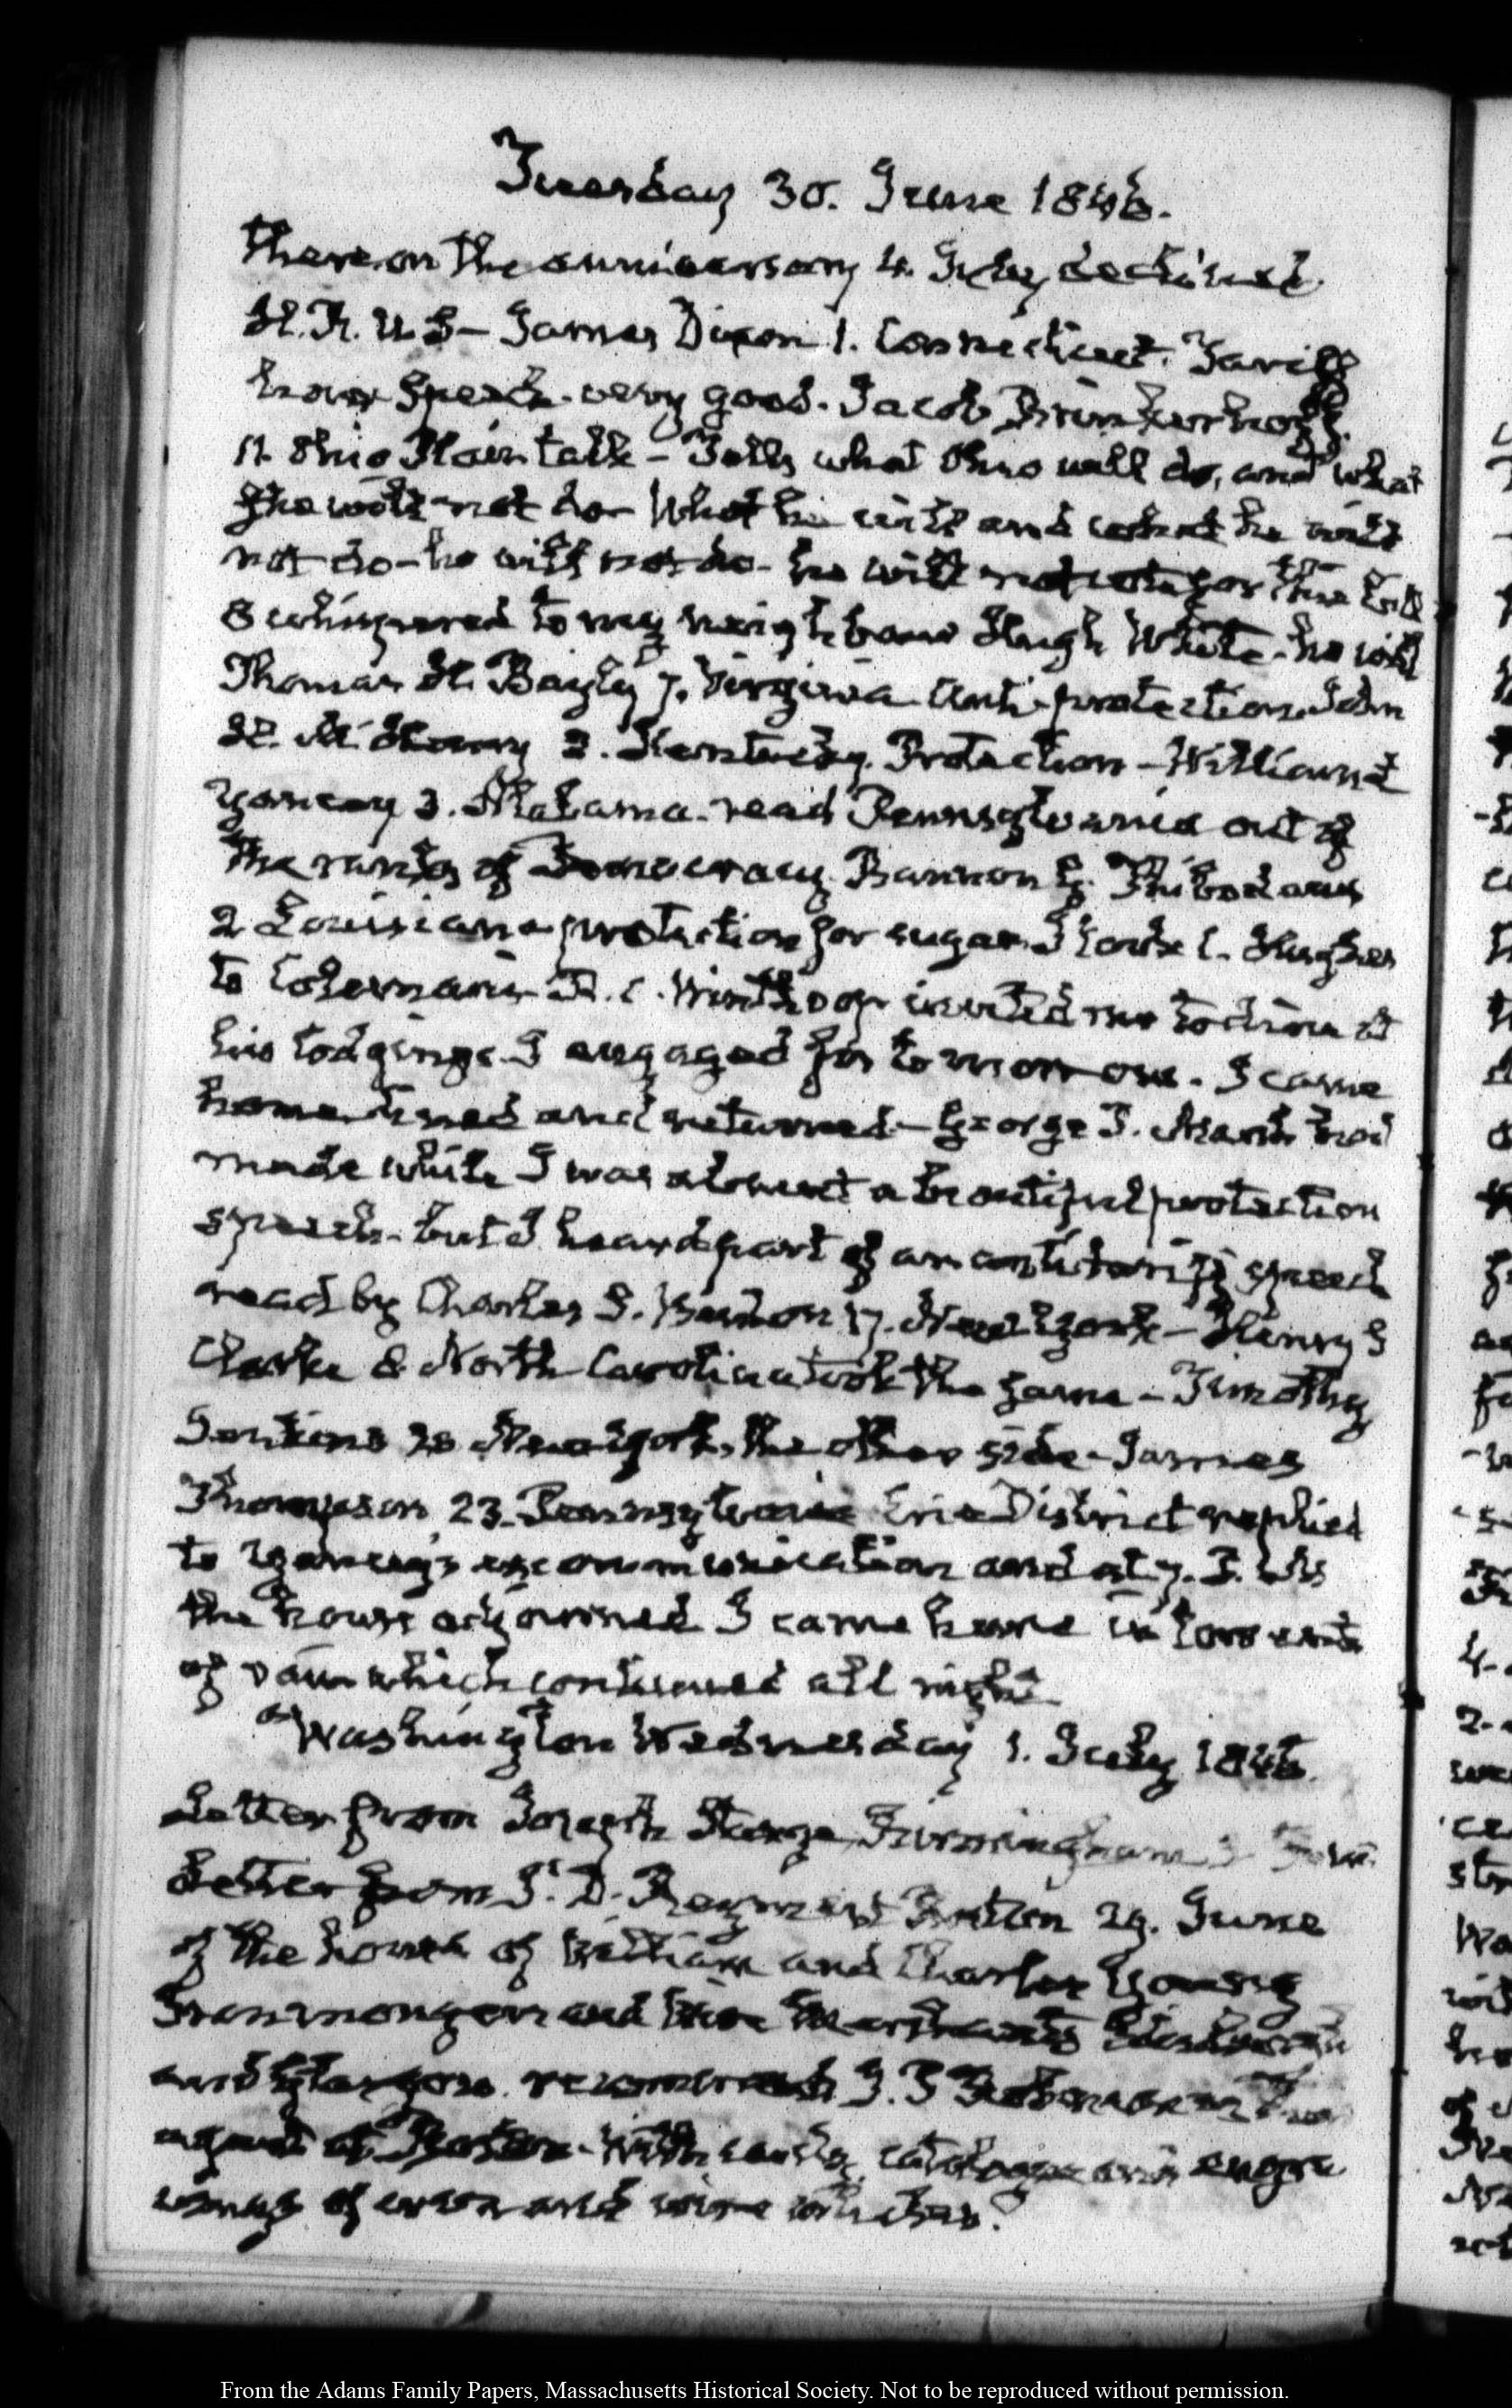 Tuesday 30. June 1846.
there on the anniversary 4. July declined.
H. R. U S— James Dixon 1. Connecticut. Tariff
hour speech. very good. Jacob Brinkerhoff.
11. Ohio Plain talk— Tells what Ohio will do, and what
she will not do— What he will and what he will
not do— he will not do— he will not vote for the bill
I whispered to my neighbour Hugh White— he will
Thomas H. Bayly 7. Virginia Anti-protection. John
H. McHenry 2. Kentucky. Protection— William L
Yancey 3. Alabama. read Pennsylvania out of
the ranks of Democracy. Bannon G. Thibodaux
2 Louisiana protection for sugar. I took C. Hughes
to Coleman's R. C. Winthrop invited me to dine at
his lodgings. I engaged for tomorrow. I came
home dined and returned— George P. Marsh had
made while I was absent a beautiful protection
speech— but I heard part of an antitariff speech
read by Charles S. Benton 17. New York— Henry S
Clarke 8. North Carolina took the same— Timothy
Jenkins 20 New York, the other side— James
Thompson 23. Pennsylvania Erie District replied
to Yancey's excommunication and at 7. P.M.
the house adjourned I came home in torrents
of rain which continued all night.
Washington Wednesday 1. July 1846.
Letter from Joseph Sturge, Birmingham 3
Letter from S. D. Boston 29. June
of the house of William and Charles Young
Ironmongers and Wire Edinburgh
and Glasgow. recommends J. S
agent at Boston. With card, catalogue and engra
vings of iron and wire
From the Adams Family Papers, Massachusetts Historical Society. Not to be reproduced without permission.